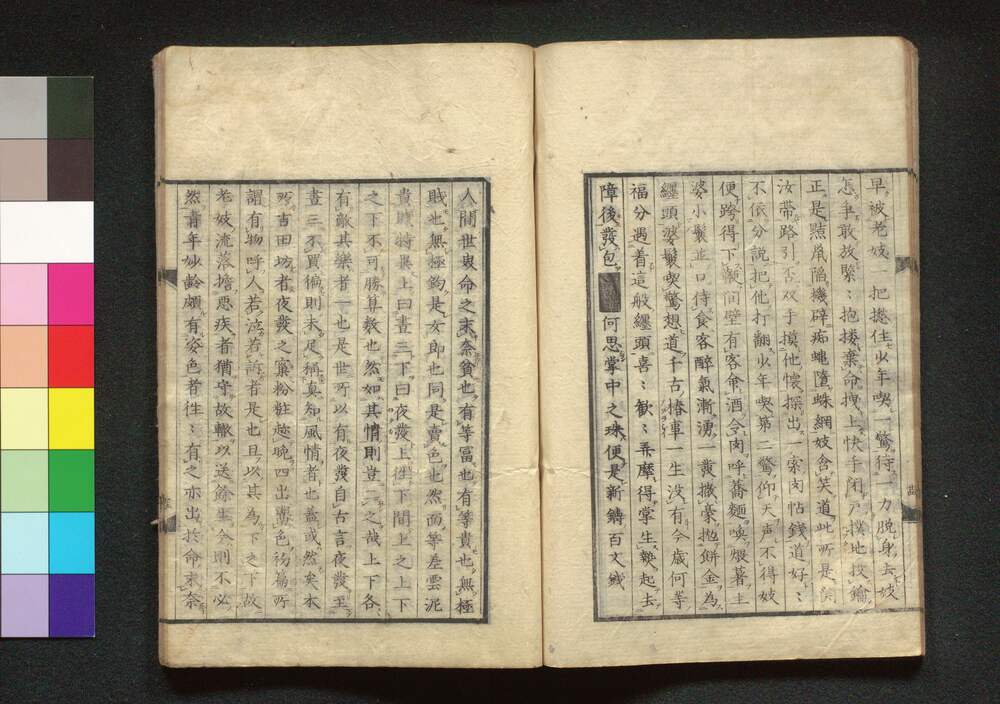 早被老妓一把捲住少年喫一驚狩一力脱身去妓
怎爭敢放緊〻抱摟棄命拽上快手閉戸撲地投鑰
正是黠鼠陥機碎痴蠅墮蛛網妓含笑道此所是関
汝帯路引否双手摸他懐探出一索肉帖錢道好〻
不依分説把他打翻少年喫第二驚仰天声不得妓
便跨得下
壁有客命酒令肉呼蕎麵喚煨薯主
婆小鬟並口待食客醉氣漸湧發撒豪抛餅金為
纏頭婆鬟喫驚想道千古椿事一生没有今歳何等
福分遇着這般纏頭喜〻歓〻弄摩得掌生熱起去
障後發包
何思掌中之珠便是新鋳百文錢
人間世
命之末奈貧也有等冨也有等貴也無極
賎也無極鈞是女郎也同是賣色也然而等差雲泥
貴賎特異上曰晝三下曰夜發上往下間上之上下
之下不可勝算数也然如其情則豈二之哉上下各
有敵其樂者一也是世所以有夜發自古言夜發至
晝三不買偏則未足稱真知風情者也蓋或然矣本
所吉田坊者夜發之窠粉粧趁晩四出鬻色
謂有物呼人若泣若訴者是也且以其為下之下故
老妓流落擔惡疾者猶守故轍以送餘生今則不必
然青年妙齡頗有姿色者往〻有之亦出於命末奈